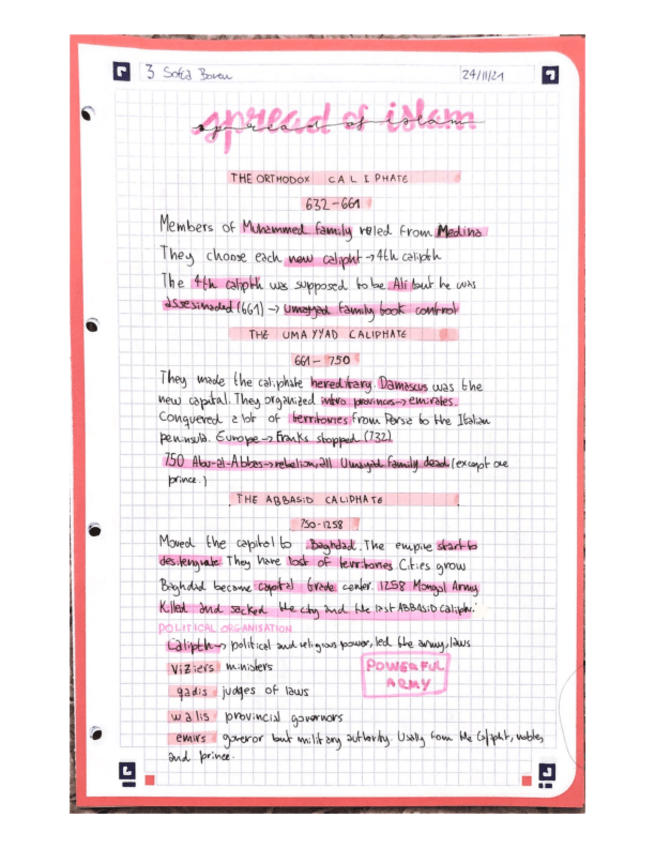 3 Sofía
24/11/21
spread of islam
THE ORTHODOX CALIPHATE
632-661
Members of Muhammed family ruled from Medina
They choose each new calipht → 4th calipth
The 4th calipth was supposed to be Ali but he was
assesinaded (661) → Umayyad family took control
THE UMAYYAD CALIPHATE
661 - 750
They made the caliphate hereditary. Damascus was the
new capital. They organized intro provinces → emirates.
Conquered a lot of territories from Persa to the Italian
peninsula. Europe → Franks stopped (732)
750 Abu-al-Abbas → rebelion, all Umayad family dead (except one
prince.)
THE ABBASID CALIPHATE
750-1258
Moved the capital to Baghdad. The empire start to
They have lost of territories. Cities grow
Baghdad became capital trade center. 1258 Mongol Army
Killed and sacked the city and the last ABBASID caliph.
POLITICAL ORGANISATION
Calipth → political and religious power, led the army, laws
Viziers ministers
POWERFUL
ARMY
qadis judges of laws
walis provincial governors
emirs goveror but military authority. Usally from the Calipht, nobles,
and prince.